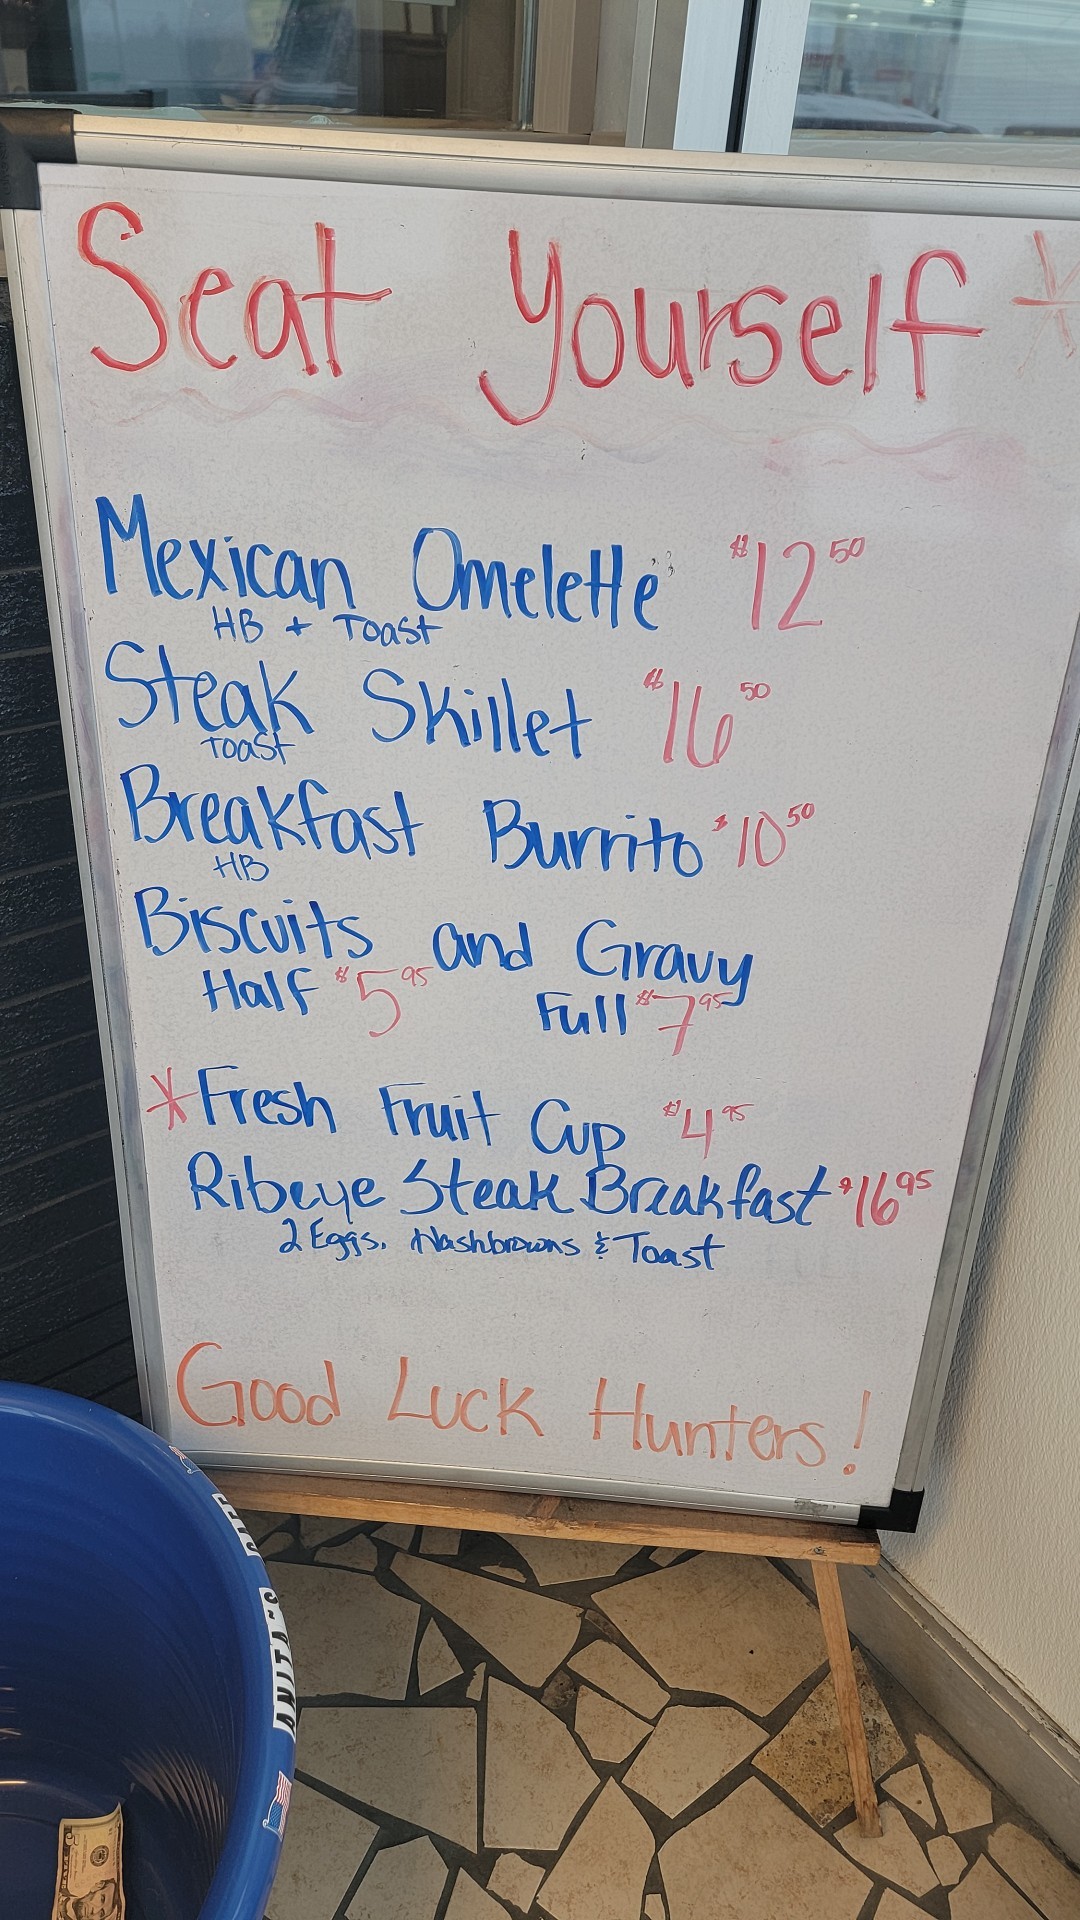 Seat Yourself *
Mexican Omelette $12 50
HB + Toast
Steak Skillet $16 50
Toast
Breakfast Burrito $10 50
HB
Biscuits and Gravy
Half $5 95 Full $7 95
*Fresh Fruit Cup $4 95
Ribeye Steak Breakfast $16 95
2 Eggs, Hashbrowns & Toast
Good Luck Hunters!
ANITA'S